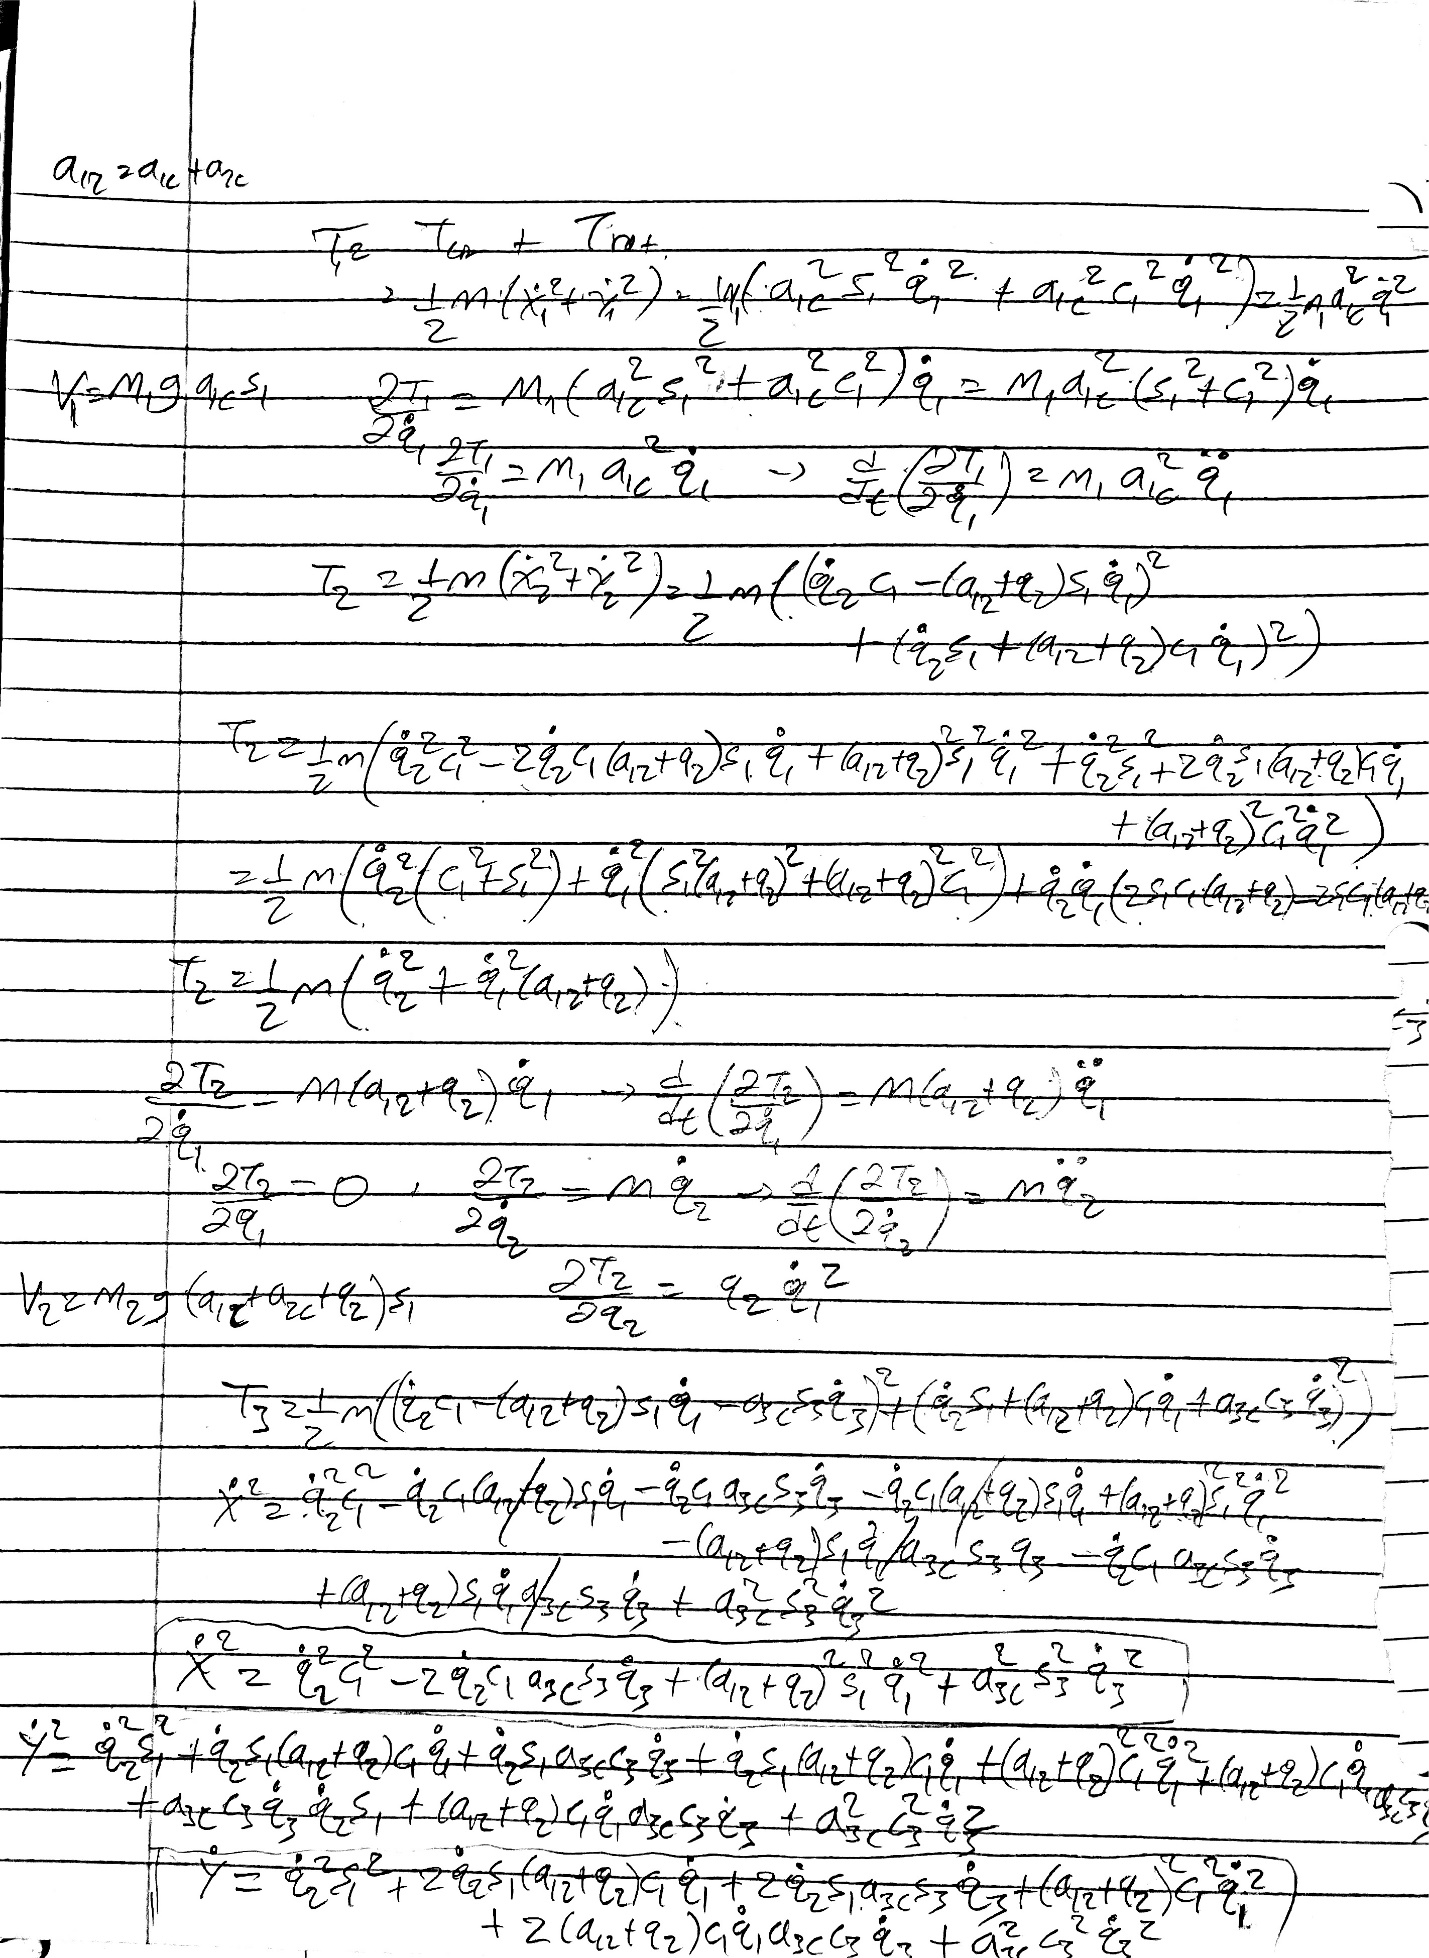 a₁₂ = a₁c + a₂c
T₁ = T + Trot
= ½ m (ẋ₁² + ẏ₁²) = ½ m₁( a₁c² s₁² q̇₁² + a₁c² c₁² q̇₁²) = ½ m₁ a₁c² q̇₁²
V₁ = M₁ g a₁c s₁
∂T₁/∂q̇₁ = M₁ (a₁c² s₁² + a₁c² c₁²) q̇₁ = M₁ a₁c² (s₁² + c₁²) q̇₁
∂T₁/∂q̇₁ = M₁ a₁c² q̇₁ → d/dt (∂T₁/∂q̇₁) = M₁ a₁c² q̈₁
T₂ = ½ m (ẋ₂² + ẏ₂²) = ½ m ( (q̇₂ c₁ - (a₁₂+q₂) s₁ q̇₁)²
+ (q̇₂ s₁ + (a₁₂+q₂) c₁ q̇₁)² )
T₂ = ½ m ( q̇₂² c₁² - 2 q̇₂ c₁ (a₁₂+q₂) s₁ q̇₁ + (a₁₂+q₂)² s₁² q̇₁² + q̇₂² s₁² + 2 q̇₂ s₁ (a₁₂+q₂) c₁ q̇₁
+ (a₁₂+q₂)² c₁² q̇₁² )
= ½ m ( q̇₂² (c₁² + s₁²) + q̇₁² ( s₁² (a₁₂+q₂)² + (a₁₂+q₂)² c₁² ) + q̇₂ q̇₁ (2 s₁ c₁ (a₁₂+q₂) - 2 s₁ c₁ (a₁₂+q₂
T₂ = ½ m ( q̇₂² + q̇₁² (a₁₂+q₂) )
∂T₂/∂q̇₁ = M (a₁₂+q₂) q̇₁ → d/dt (∂T₂/∂q̇₁) = M (a₁₂+q₂) q̈₁
∂T₂/∂q₁ = 0 , ∂T₂/∂q̇₂ = m q̇₂ → d/dt (∂T₂/∂q̇₂) = m q̈₂
V₂ = M₂ g (a₁₂ + a₂c + q₂) s₁
∂T₂/∂q₂ = q₂ q̇₁²
T₃ = ½ m ( (q̇₂ c₁ - (a₁₂+q₂) s₁ q̇₁ - a₃c s₃ q̇₃)² + (q̇₂ s₁ + (a₁₂+q₂) c₁ q̇₁ + a₃c c₃ q̇₃)² )
ẋ² = q̇₂² c₁² - q̇₂ c₁ (a₁₂+q₂) s₁ q̇₁ - q̇₂ c₁ a₃c s₃ q̇₃ - q̇₂ c₁ (a₁₂+q₂) s₁ q̇₁ + (a₁₂+q₂)² s₁² q̇₁²
- (a₁₂+q₂) s₁ q̇₁ a₃c s₃ q₃ - q̇₂ c₁ a₃c s₃ q̇₃
+ (a₁₂+q₂) s₁ q̇₁ a₃c s₃ q̇₃ + a₃c² s₃² q̇₃²
ẋ² = q̇₂² c₁² - 2 q̇₂ c₁ a₃c s₃ q̇₃ + (a₁₂+q₂)² s₁² q̇₁² + a₃c² s₃² q̇₃²
ẏ² = q̇₂² s₁² + q̇₂ s₁ (a₁₂+q₂) c₁ q̇₁ + q̇₂ s₁ a₃c c₃ q̇₃ + q̇₂ s₁ (a₁₂+q₂) c₁ q̇₁ + (a₁₂+q₂)² c₁² q̇₁² + (a₁₂+q₂) c₁ q̇₁ a₃c c₃
+ a₃c c₃ q̇₃ q̇₂ s₁ + (a₁₂+q₂) c₁ q̇₁ a₃c c₃ q̇₃ + a₃c² c₃² q̇₃²
ẏ = q̇₂² s₁² + 2 q̇₂ s₁ (a₁₂+q₂) c₁ q̇₁ + 2 q̇₂ s₁ a₃c s₃ q̇₃ + (a₁₂+q₂)² c₁² q̇₁²
+ 2 (a₁₂+q₂) c₁ q̇₁ a₃c c₃ q̇₃ + a₃c² c₃² q̇₃²